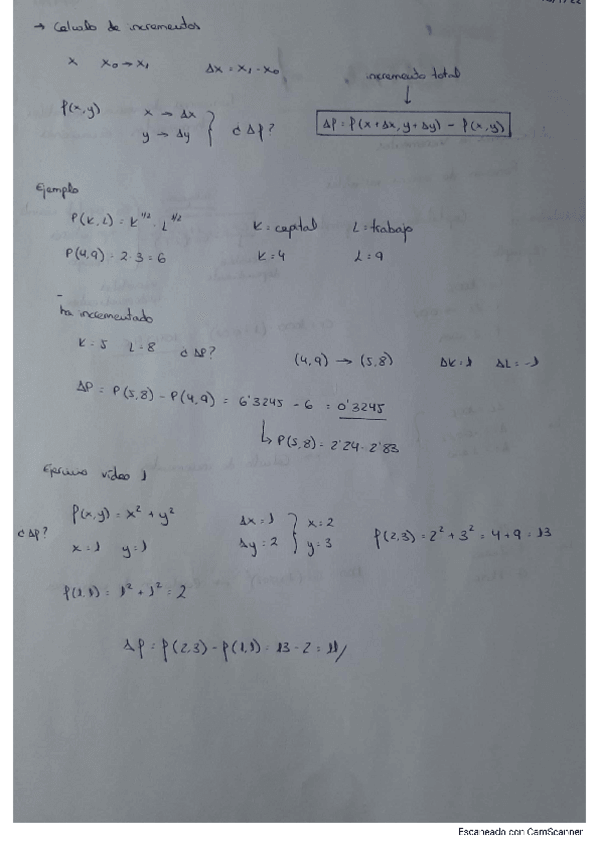 → Calculo de incrementos
x x₀→x₁ Δx = x₁ - x₀
incremento total
f(x,y) x → Δx y → Δy } ¿Δf? Δf = f(x+Δx, y+Δy) - f(x,y)
Ejemplo
P(K,L) = K^1/2 · L^1/2 K = capital L = trabajo
P(4,9) = 2·3 = 6 K = 4 L = 9
ha incrementado
K = 5 L = 8 ¿ΔP? (4,9) → (5,8) ΔK = 1 ΔL = -1
ΔP = P(5,8) - P(4,9) = 6'3245 - 6 = 0'3245
↳ P(5,8) = 2'24 · 2'83
Ejercicio vídeo 1
¿Δf? f(x,y) = x² + y² Δx = 1 Δy = 2 } x = 2 y = 3 f(2,3) = 2² + 3² = 4 + 9 = 13
x = 1 y = 1
f(1,1) = 1² + 1² = 2
Δf = f(2,3) - f(1,1) = 13 - 2 = 11/
Escaneado con CamScanner